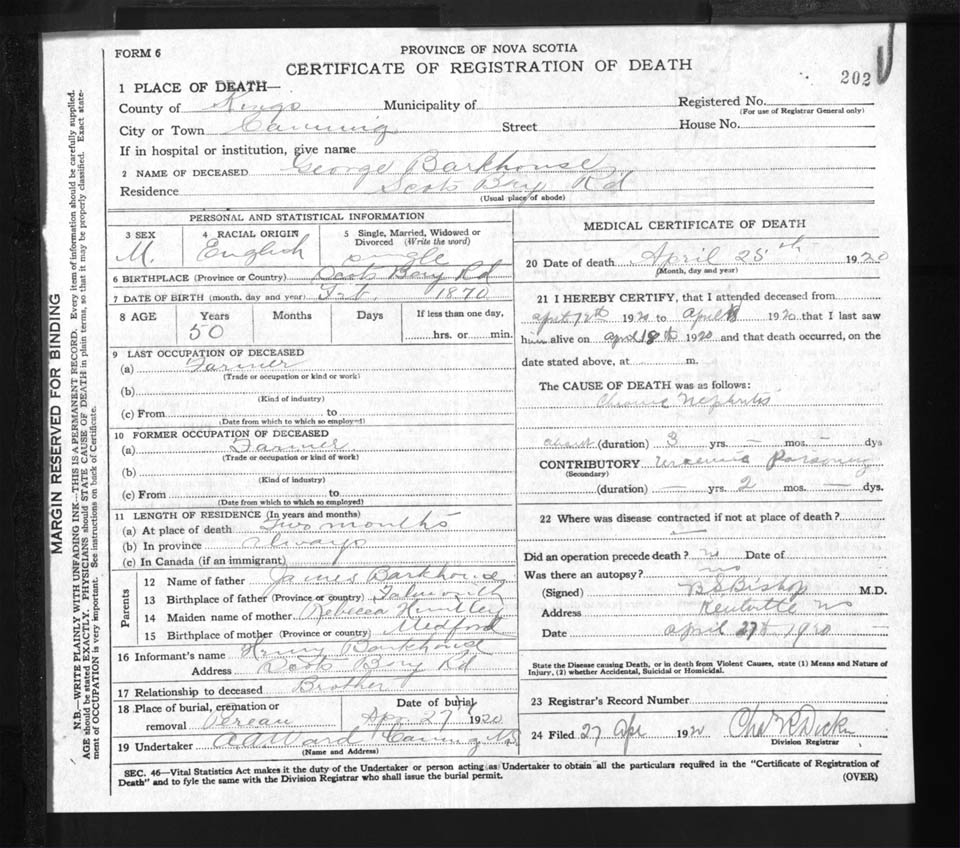 FORM 6
PROVINCE OF NOVA SCOTIA
CERTIFICATE OF REGISTRATION OF DEATH
202
1 PLACE OF DEATH—
County of Kings Municipality of Registered No.
(For use of Registrar General only)
City or Town Canning Street House No.
If in hospital or institution, give name
2 NAME OF DECEASED George Barkhouse
Residence Scots Bay Rd
(Usual place of abode)
PERSONAL AND STATISTICAL INFORMATION
3 SEX 4 RACIAL ORIGIN 5 Single, Married, Widowed or Divorced (Write the word)
M. English single
6 BIRTHPLACE (Province or Country) Scots Bay Rd
7 DATE OF BIRTH (month, day and year) 1870
8 AGE Years Months Days If less than one day,
50 hrs. or min.
9 LAST OCCUPATION OF DECEASED
(a) Farmer
(Trade or occupation or kind or work)
(b)
(Kind of industry)
(c) From to
(Date from which to which so employed)
10 FORMER OCCUPATION OF DECEASED
(a) Farmer
(Trade or occupation or kind of work)
(b)
(Kind of industry)
(c) From to
(Date from which to which so employed)
11 LENGTH OF RESIDENCE (In years and months)
(a) At place of death Two months
(b) In province always
(c) In Canada (if an immigrant)
Parents
12 Name of father James Barkhouse
13 Birthplace of father (Province or country) Falmouth
14 Maiden name of mother Rebecca Huntley
15 Birthplace of mother (Province or country) Medford
16 Informant's name Henry Barkhouse
Address Scots Bay Rd
17 Relationship to deceased Brother
18 Place of burial, cremation or removal Pereau Date of burial Apr 27 1920
19 Undertaker A A Ward Canning N.S
(Name and Address)
MEDICAL CERTIFICATE OF DEATH
20 Date of death April 25th 1920
(Month, day and year)
21 I HEREBY CERTIFY, that I attended deceased from
April 12th 1920 to April 18 1920 that I last saw
him alive on April 18th 1920 and that death occurred, on the
date stated above, at m.
The CAUSE OF DEATH was as follows:
Chronic Nephritis
about (duration) 3 yrs. — mos. — dys
CONTRIBUTORY Uraemic Poisoning
(Secondary)
(duration) — yrs. 2 mos. — dys.
22 Where was disease contracted if not at place of death?
—
Did an operation precede death? no Date of
Was there an autopsy? no
(Signed) B S Bishop M.D.
Address Kentville NS
Date April 27th 1920
State the Disease causing Death, or in death from Violent Causes, state (1) Means and Nature of
Injury, (2) whether Accidental, Suicidal or Homicidal.
23 Registrar's Record Number
24 Filed 27 Apr 1920 Chas R Dickie
Division Registrar
SEC. 46—Vital Statistics Act makes it the duty of the Undertaker or person acting as Undertaker to obtain all the particulars required in the "Certificate of Registration of
Death" and to fyle the same with the Division Registrar who shall issue the burial permit.
(OVER)
MARGIN RESERVED FOR BINDING
N.B.—WRITE PLAINLY WITH UNFADING INK—THIS IS A PERMANENT RECORD. Every item of information should be carefully supplied.
AGE should be stated EXACTLY. PHYSICIANS should STATE CAUSE OF DEATH in plain terms, so that it may be properly classified. Exact state-
ment of OCCUPATION is very important. See instructions on back of Certificate.